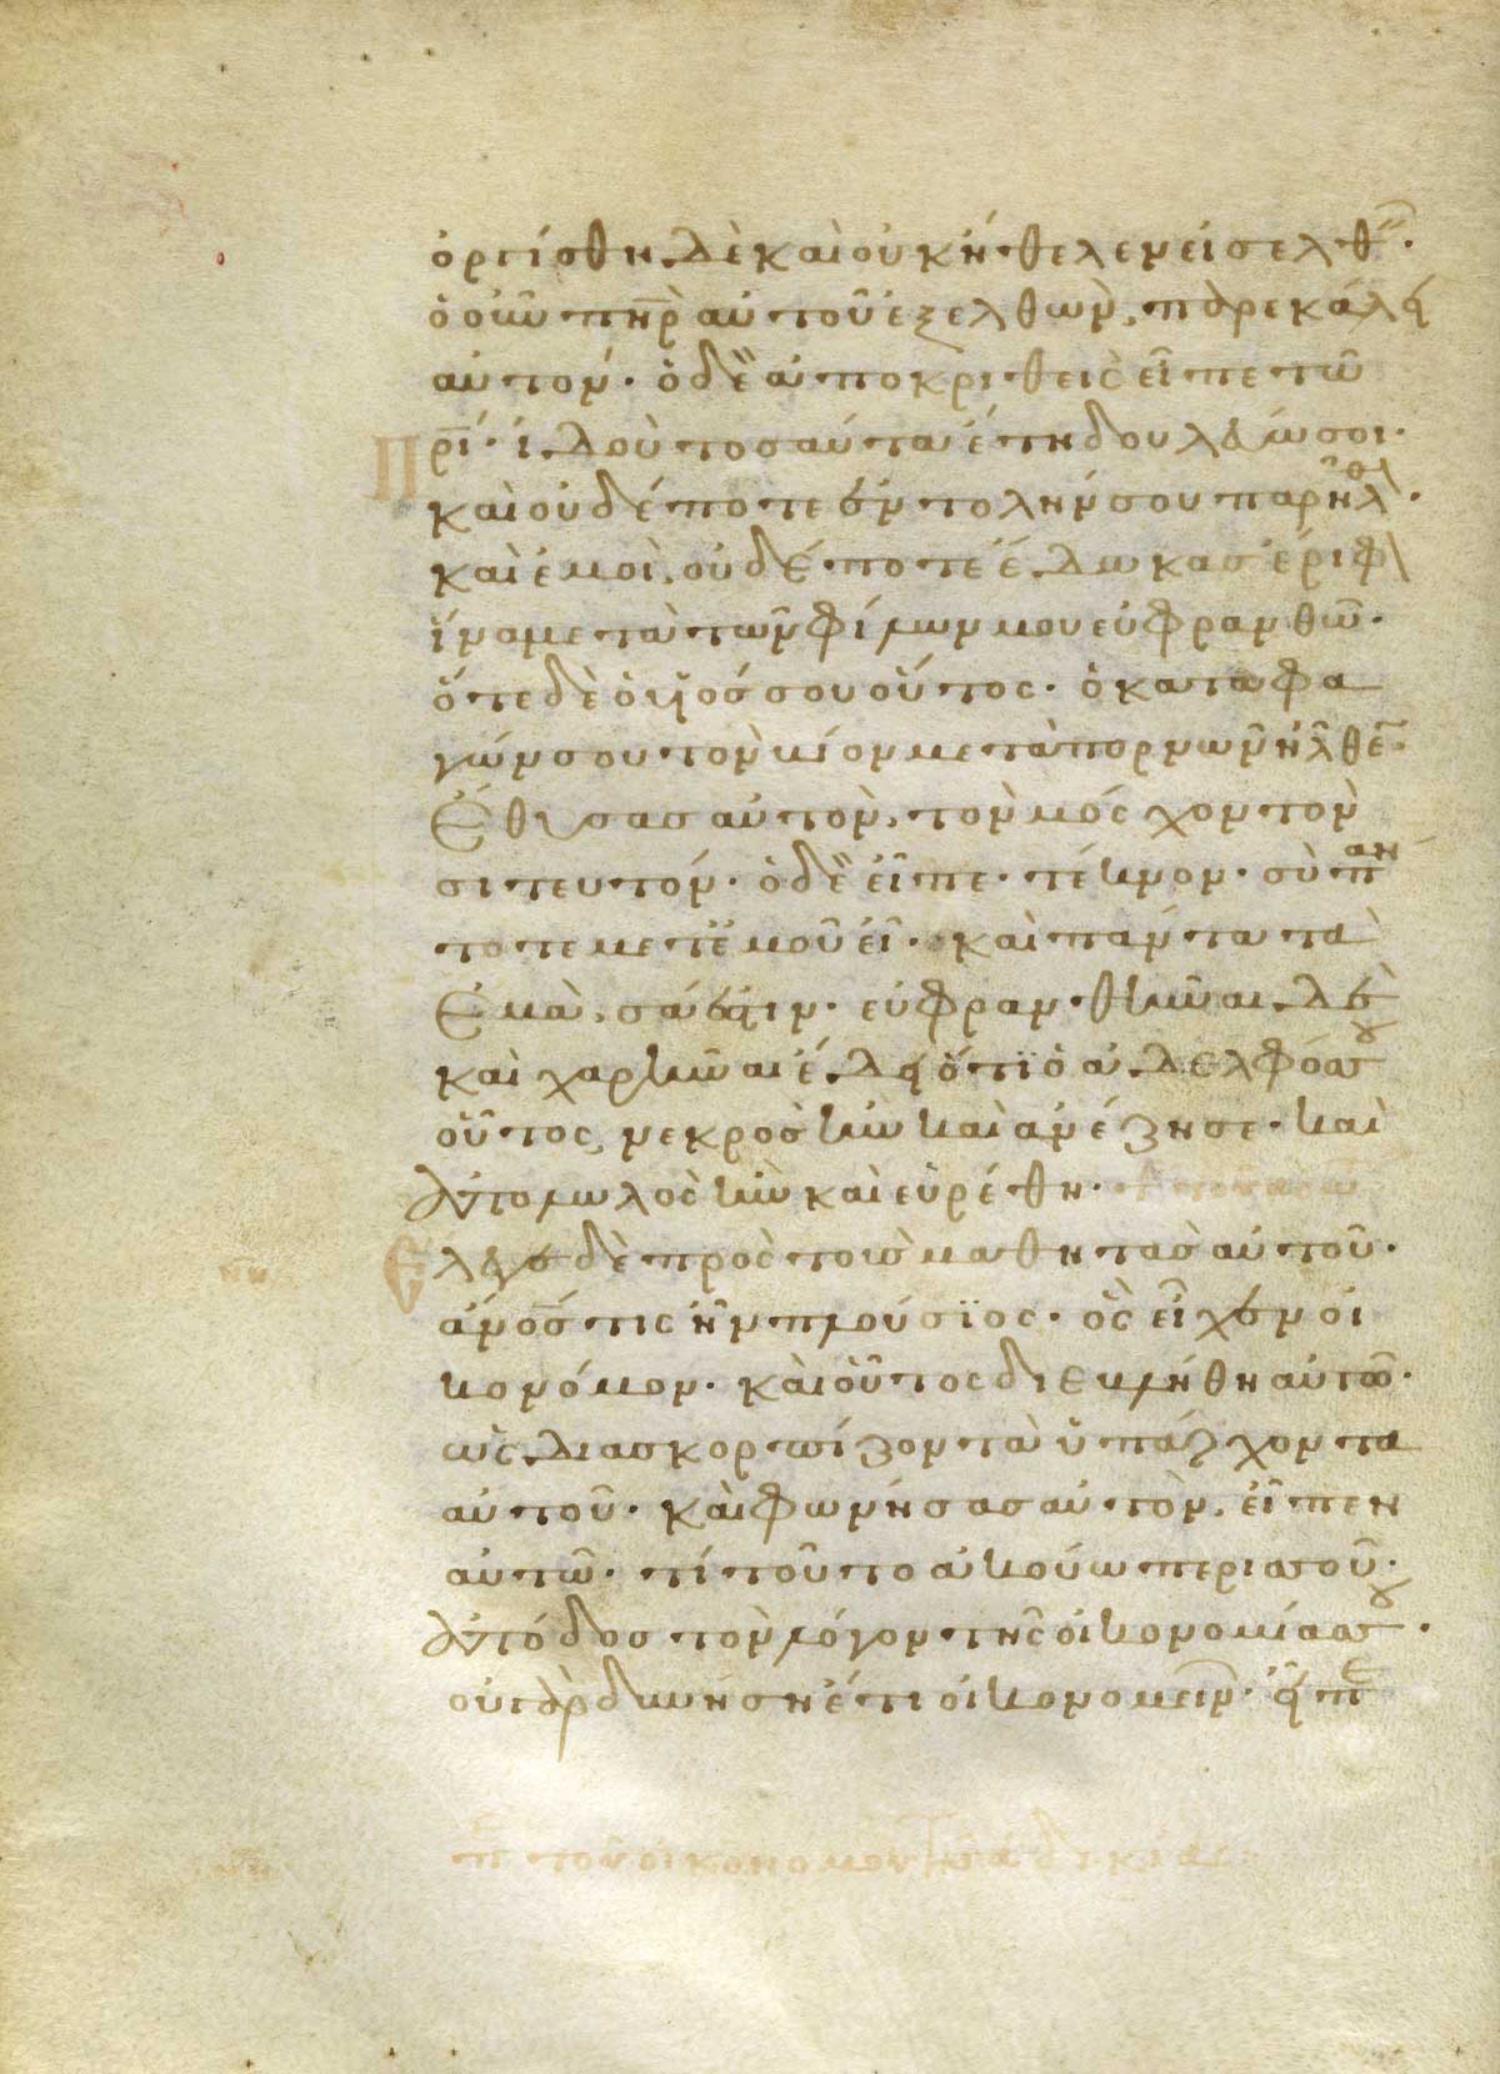 ὀργίσθη δὲ καὶ οὐκ ἤθελεν εἰσελθεῖν·
ὁ οὖν πη̅ρ αὐτοῦ ἐξελθὼν, παρεκάλει
αὐτόν· ὁ δὲ ἀποκριθεὶς εἶπε τῶ
πρ̅ί· ἰδοὺ τοσαύτα ἔτη δουλεύω σοι·
καὶ οὐδέποτε ἐντολήν σου παρῆλθ
καὶ ἐμοὶ, οὐδέποτε ἔδωκασ ἔριφ
ἵνα μετὰ τῶν φίλων μου εὐφρανθῶ·
ὅτε δὲ ὁ υἱόσ σου οὗτος· ὁ καταφα
γών σου τὸν βίον μετὰ πορνῶν ἦλθεν·
ἔθυσασ αὐτὸν, τὸν μόσχον τὸν
σιτευτόν· ὁ δὲ εἶπε· τέκνον· σὺ παν
τοτε μετ ἐμοῦ εἶ· καὶ πάντα τὰ
ἐμὰ, σά ἐστιν· εὐφρανθῆναι δὲ
καὶ χαρῆναι ἔδει ὅτϊ ὁ ἀδελφόσ σου
οὗτος, νεκρὸσ ἦν καὶ ἀνέζησε· καὶ
ἀπολωλὸς ἦν καὶ εὑρέθη·
Ελεγε δὲ πρὸς τοὺσ μαθητὰσ αὐτοῦ·
α̅ν̅ο̅ς τις ἦν πλούσϊος· ὃς εἶχεν οἰ
κονόμον· καὶ οὗτος διεβλήθη αὐτῶ·
ὡς διασκορπίζον τὰ ὑπάρχοντα
αὐτοῦ· καὶ φωνήσασ αὐτὸν, εἶπεν
αὐτῶ· τί τοῦτο ἀκούω περι σοῦ·
ἀπόδοσ τὸν λόγον τῆς οἰκονομίασ σου·
οὐ γὰρ δυνήση ἔτι οἰκονομεῖν· εἶπε